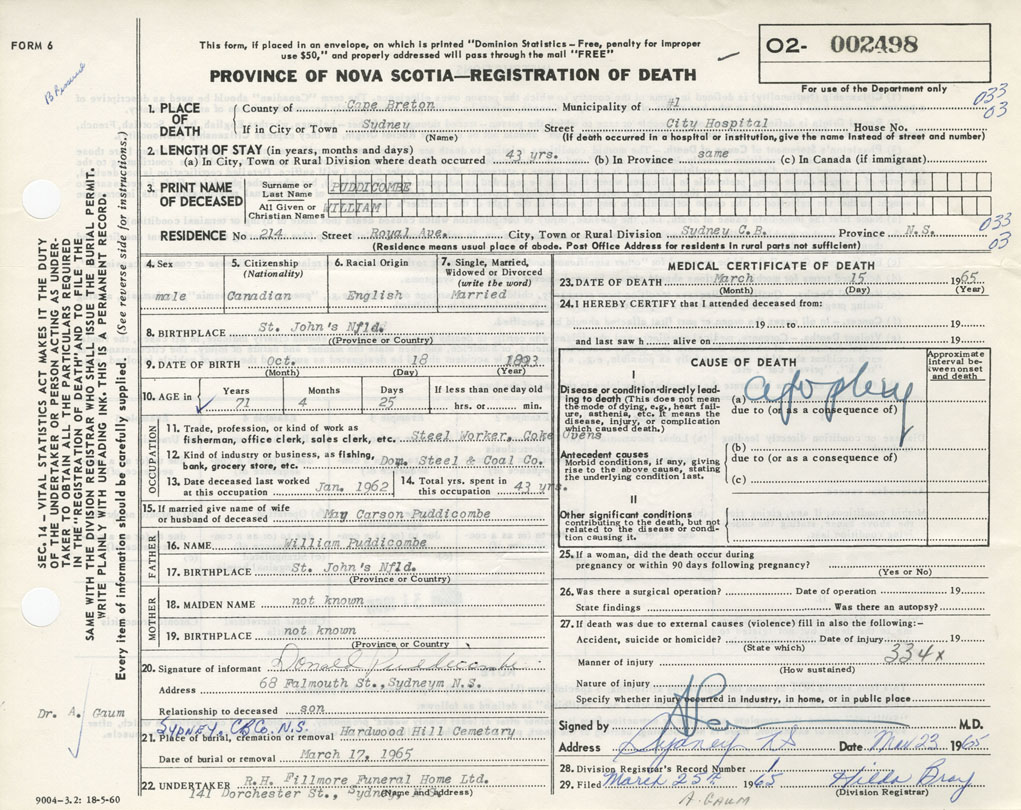 FORM 6
This form, if placed in an envelope, on which is printed "Dominion Statistics – Free, penalty for improper
use $50," and properly addressed will pass through the mail "FREE"
O2- 002498
For use of the Department only
PROVINCE OF NOVA SCOTIA—REGISTRATION OF DEATH
033
03
1. PLACE OF DEATH
County of Cape Breton Municipality of #1
If in City or Town Sydney Street City Hospital House No.
(Name) (If death occurred in a hospital or institution, give the name instead of street and number)
2. LENGTH OF STAY (in years, months and days)
(a) In City, Town or Rural Division where death occurred 43 yrs. (b) In Province same (c) In Canada (if immigrant)
3. PRINT NAME OF DECEASED
Surname or Last Name PUDDICOMBE
All Given or Christian Names WILLIAM
RESIDENCE No 214 Street Royal Ave. City, Town or Rural Division Sydney C.B. Province N.S.
033
03
(Residence means usual place of abode. Post Office Address for residents in rural parts not sufficient)
4. Sex
male
5. Citizenship
(Nationality)
Canadian
6. Racial Origin
English
7. Single, Married,
Widowed or Divorced
(write the word)
Married
8. BIRTHPLACE St. John's Nfld.
(Province or Country)
9. DATE OF BIRTH Oct. 18 1893
(Month) (Day) (Year)
10. AGE in
Years Months Days If less than one day old
71 4 25 hrs. or min.
OCCUPATION
11. Trade, profession, or kind of work as
fisherman, office clerk, sales clerk, etc. Steel Worker, Coke Ovens
12. Kind of industry or business, as fishing,
bank, grocery store, etc. Dom. Steel & Coal Co.
13. Date deceased last worked
at this occupation Jan. 1962
14. Total yrs. spent in
this occupation 43 yrs.
15. If married give name of wife
or husband of deceased May Carson Puddicombe
FATHER
16. NAME William Puddicombe
17. BIRTHPLACE St. John's Nfld.
(Province or Country)
MOTHER
18. MAIDEN NAME not known
19. BIRTHPLACE not known
(Province or Country)
20. Signature of informant Donald Puddicombe
Address 68 Falmouth St., Sydneym N.S.
Relationship to deceased son
SYDNEY, C.B. Co. N.S.
21. Place of burial, cremation or removal Hardwood Hill Cemetary
Date of burial or removal March 17, 1965
22. UNDERTAKER R.H. Fillmore Funeral Home Ltd.
141 Dorchester St., Sydney
(Name and address)
MEDICAL CERTIFICATE OF DEATH
23. DATE OF DEATH March 15 1965
(Month) (Day) (Year)
24. I HEREBY CERTIFY that I attended deceased from:
19 to 19
and last saw h alive on 19
CAUSE OF DEATH
Approximate
interval be-
tween onset
and death
I
Disease or condition directly lead-
ing to death (This does not mean
the mode of dying, e.g., heart fail-
ure, asthenia, etc. It means the
disease, injury, or complication
which caused death.)
(a) apoplexy
due to (or as a consequence of)
Antecedent causes
Morbid conditions, if any, giving
rise to the above cause, stating
the underlying condition last.
(b)
due to (or as a consequence of)
(c)
II
Other significant conditions
contributing to the death, but not
related to the disease or condi-
tion causing it.
25. If a woman, did the death occur during
pregnancy or within 90 days following pregnancy?
(Yes or No)
26. Was there a surgical operation? Date of operation 19
State findings Was there an autopsy?
27. If death was due to external causes (violence) fill in also the following:-
Accident, suicide or homicide? Date of injury 19
(State which)
334x
Manner of injury
(How sustained)
Nature of injury
Specify whether injury occurred in industry, in home, or in public place
Signed by M.D.
Address Sydney NS Date Mar 23 1965
28. Division Registrar's Record Number
29. Filed March 25th 1965 Hilda Bray
(Division Registrar)
A. GAUM
SEC. 14 – VITAL STATISTICS ACT MAKES IT THE DUTY
OF THE UNDERTAKER OR PERSON ACTING AS UNDER-
TAKER TO OBTAIN ALL THE PARTICULARS REQUIRED
IN THE "REGISTRATION OF DEATH" AND TO FILE THE
SAME WITH THE DIVISION REGISTRAR WHO SHALL ISSUE THE BURIAL PERMIT.
WRITE PLAINLY WITH UNFADING INK. THIS IS A PERMANENT RECORD.
Every item of information should be carefully supplied. (See reverse side for instructions.)
Dr. A. Gaum
9004–3.2: 18-5-60